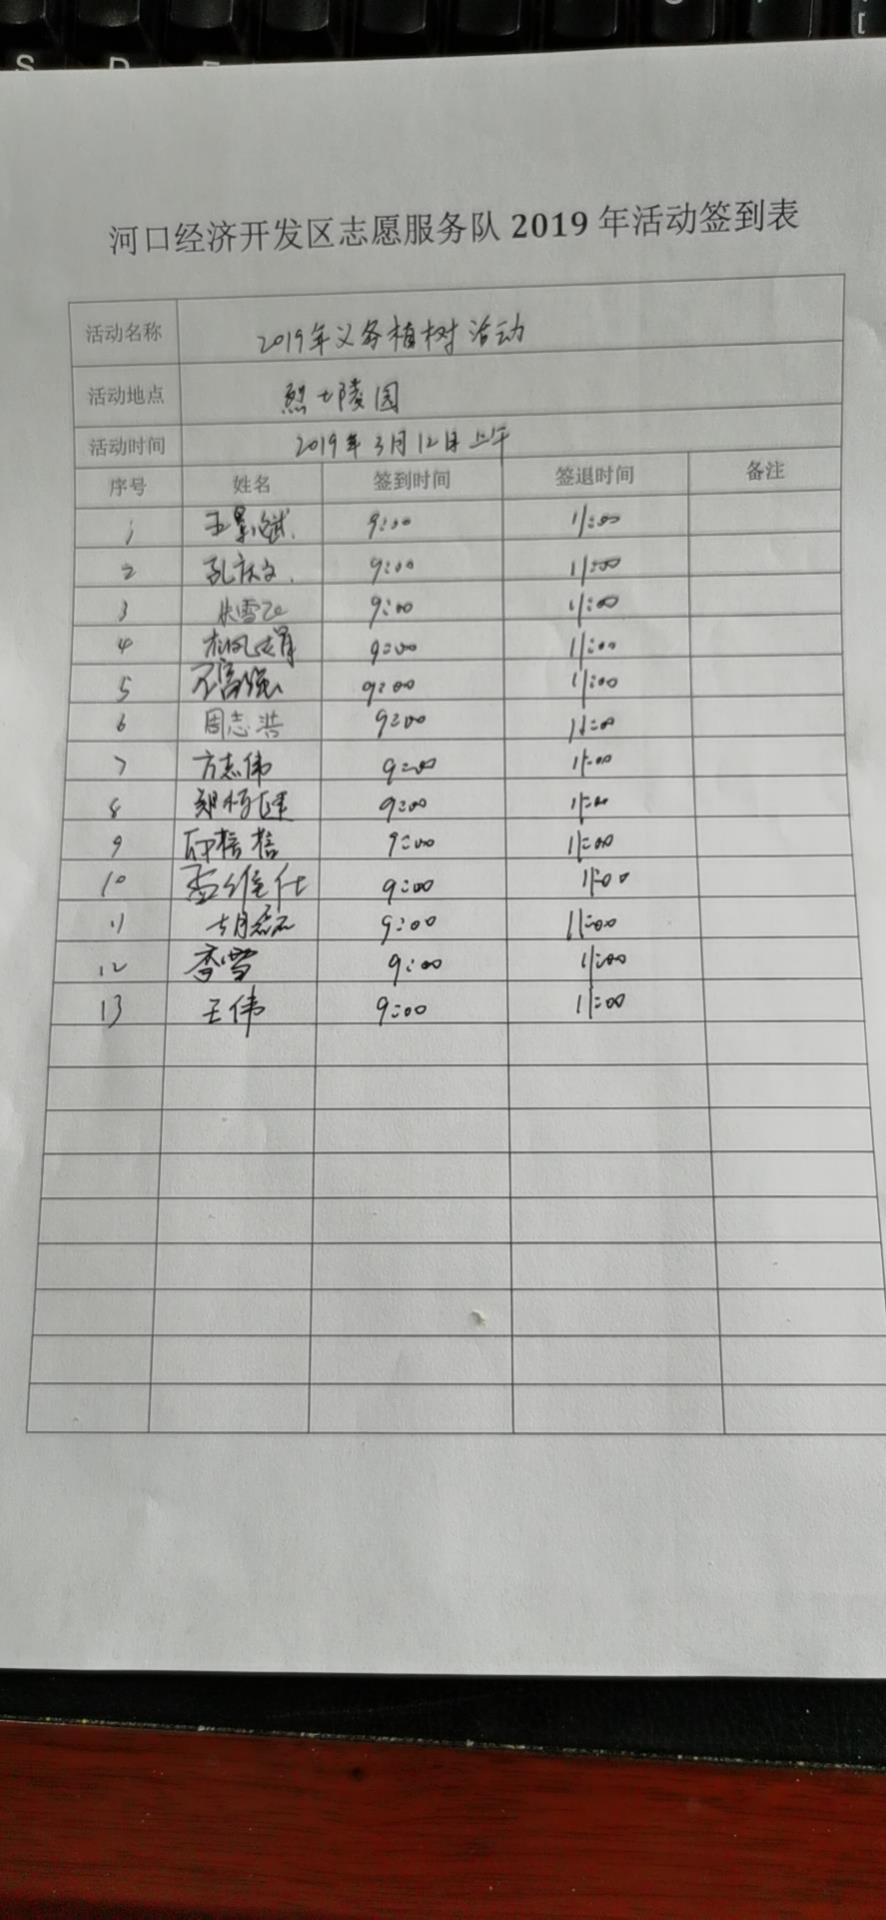 S D F
[
河口经济开发区志愿服务队 2019 年活动签到表
活动名称 2019年义务植树活动
活动地点 烈士陵园
活动时间 2019年3月12日上午
序号 姓名 签到时间 签退时间 备注
1 王景斌 9:00 11:00
2 孔庆文 9:00 11:00
3 9:00 11:00
4 9:00 11:00
5 9:00 11:00
6 周志浩 9:00 11:00
7 方志伟 9:00 11:00
8 9:00 11:00
9 9:00 11:00
10 孟维仕 9:00 11:00
11 9:00 11:00
12 李雪 9:00 11:00
13 王伟 9:00 11:00